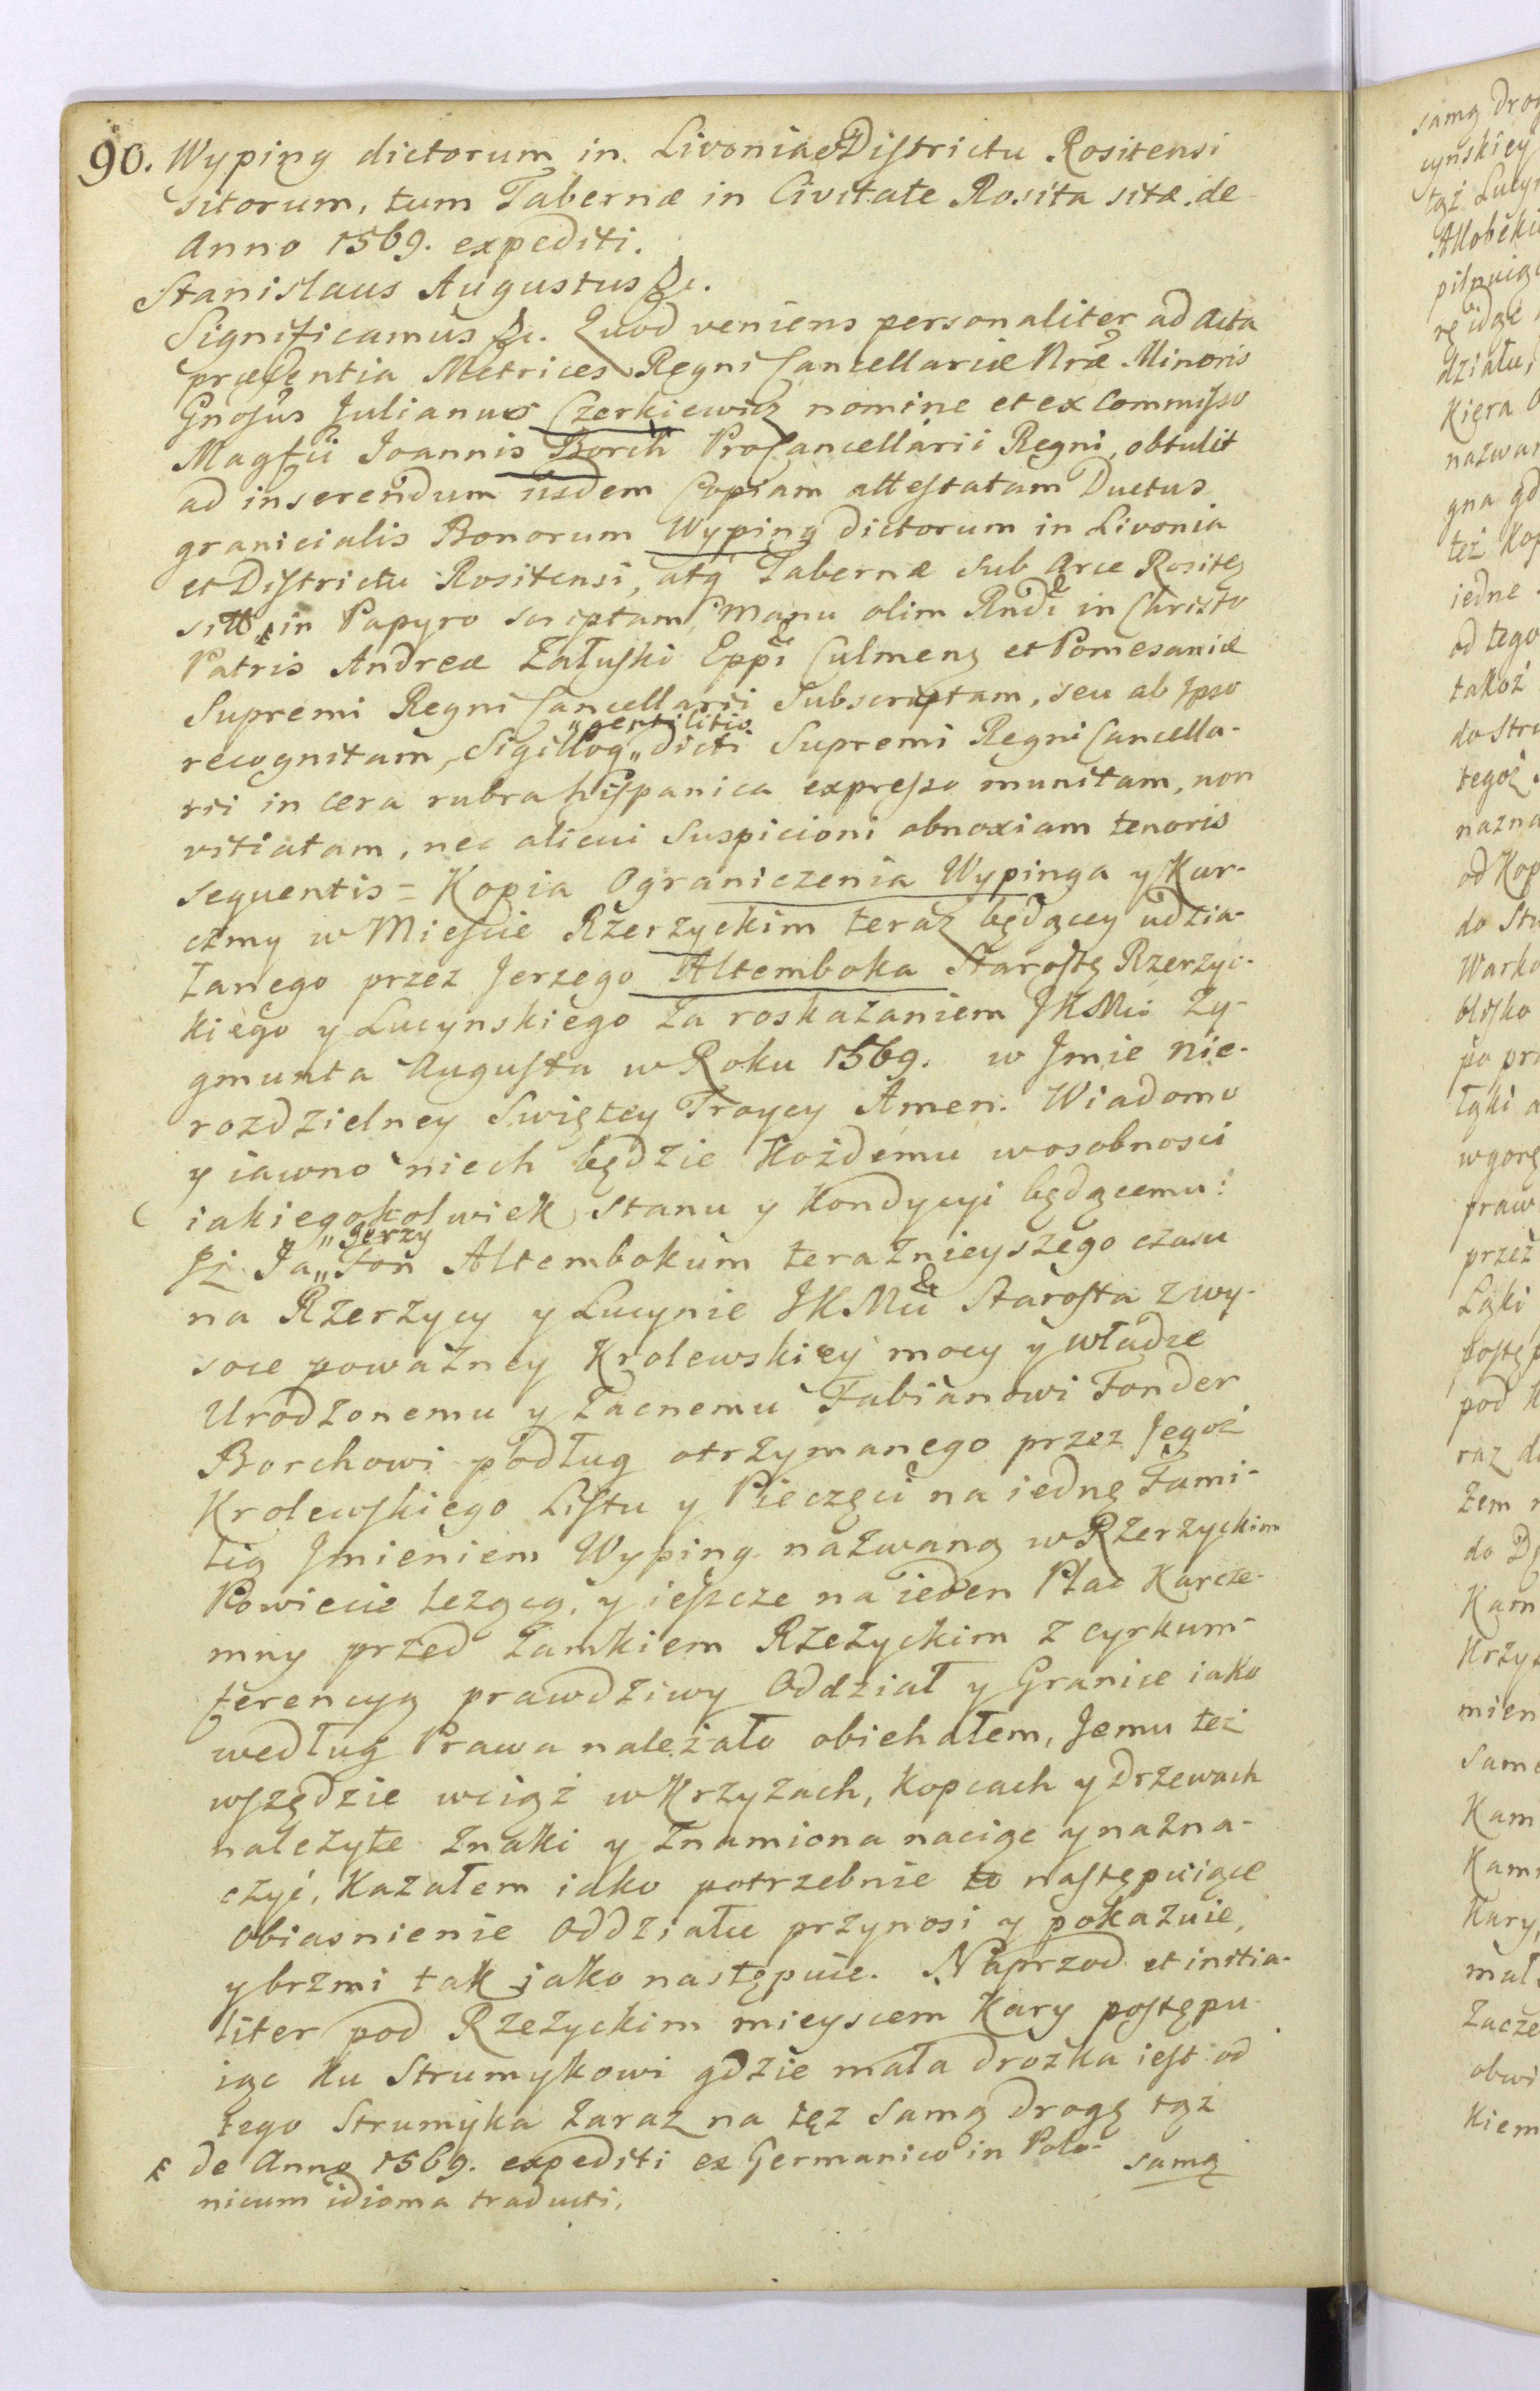 90. Wyping dictorum in Livoniae Districtu Rositensi
sitorum, tum Tabernæ in Civitate Rosita sitæ de
Anno 1569. expediti.
Stanislaus Augustus &c.
Significamus &c. Quod veniens personaliter ad Acta
præsentia Metrices Regni Cancellariæ Nræ Minoris
Gnosus Julianus Czerkiewicz nomine et ex Commisso
Magfci Joannis Borch ProCancellarii Regni, obtulit
ad inserendum iisdem Copiam attestatam Ductus
granicialis Bonorum Wyping dictorum in Livonia
et Districtu Rositensi, atq Tabernæ sub Arce Rositen
sitæ in Papyro scriptam, Manu olim Rndi in Christo
Patris Andreæ Załuski Eppi Culmens et Pomesaniæ
Supremi Regni Cancellarii Subscriptam, seu ab Ipso
recognitam, Sigilloq „gentilitio„ dicti Supremi Regni Cancella-
rii in cera rubra hispanica expresso munitam, non
vitiatam, nec alicui Suspicioni obnoxiam tenoris
sequentis = Kopia Ograniczenia Wypinga y Kar-
czmy w Mieście Rzerzyckim teraz będącey udzia-
łanego przez Jerzego Altemboka Starostę Rzerzyc-
kiego y Lucynskiego za roskazaniem JKMci Zy-
gmunta Augusta w Roku 1569. w Jmie nie-
rozdzielney Swiętey Troycy Amen. Wiadomo
y iawno niech będzie Kożdemu w osobności
iakiegokolwiek stanu y Kondycyi będącemu:
Jż Ja „Jerzy„ Fon Altembokum teraznieyszego czasu
na Rzerzycy y Lucynie JKMci Starosta z wy-
soce poważney Krolewskiey mocy y władze
Urodzonemu y Zacnemu Fabianowi Fonder
Borchowi podług otrzymanego przez Jegoż
Krolewskiego Listu y Pieczęci na iednę Fami-
lią Jmieniem Wyping nazwaną w Rzerzyckim
Powiecie leżącą, y ieszcze na ieden Plac Karcze-
mny przed Zamkiem Rzeżyckim z cyrkum-
ferencyą prawdziwy Oddział y Granice iako
według Prawa należało obiehałem, Jemu też
wszędzie wciąż w Krzyżach, Kopcach y drzewach
należyte Znaki y Znamiona naciąc y nazna-
czyć, Kazałem iako potrzebnie to następuiące
Obiasnienie Oddziału przynosi y pokazuie,
y brzmi tak iako następuie. Naprzod et initia-
liter pod Rzeżyckim mieyscem Kary postępu-
iąc Ku Strumykowi gdzie mała drożka iest od
tego Strumyka zaraz na tęż samą drogę tąż
de Anno 1569. expediti ex Germanico in Polo-
nicum idioma traducti,
samą
samą dro
cynskiey
tąż Lucyn
działu,
Kiera
nazwan
gna gd
też Kop
iedne
od tego
takoż
do Stru
tegoż
nazna
od Kop
do Stru
Warko
blisko
po pra
w gorę
praw
przez
Łąki
postęp
pod K
raz d
Kam
Krzyż
mien
Same
Kam
Kam
Kary,
mał
Zacze
obwi
Kiem